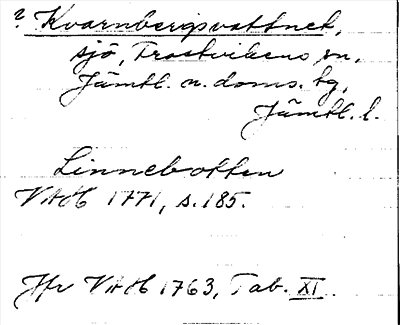 ? Kvarnbergsvattnet,
sjö, Frostvikens sn,
Jämtl. n. doms. tg,
Jämtl. l.
Linnebotten
VAH 1771, s. 185.
Jfr VAH 1763, Tab. XI.